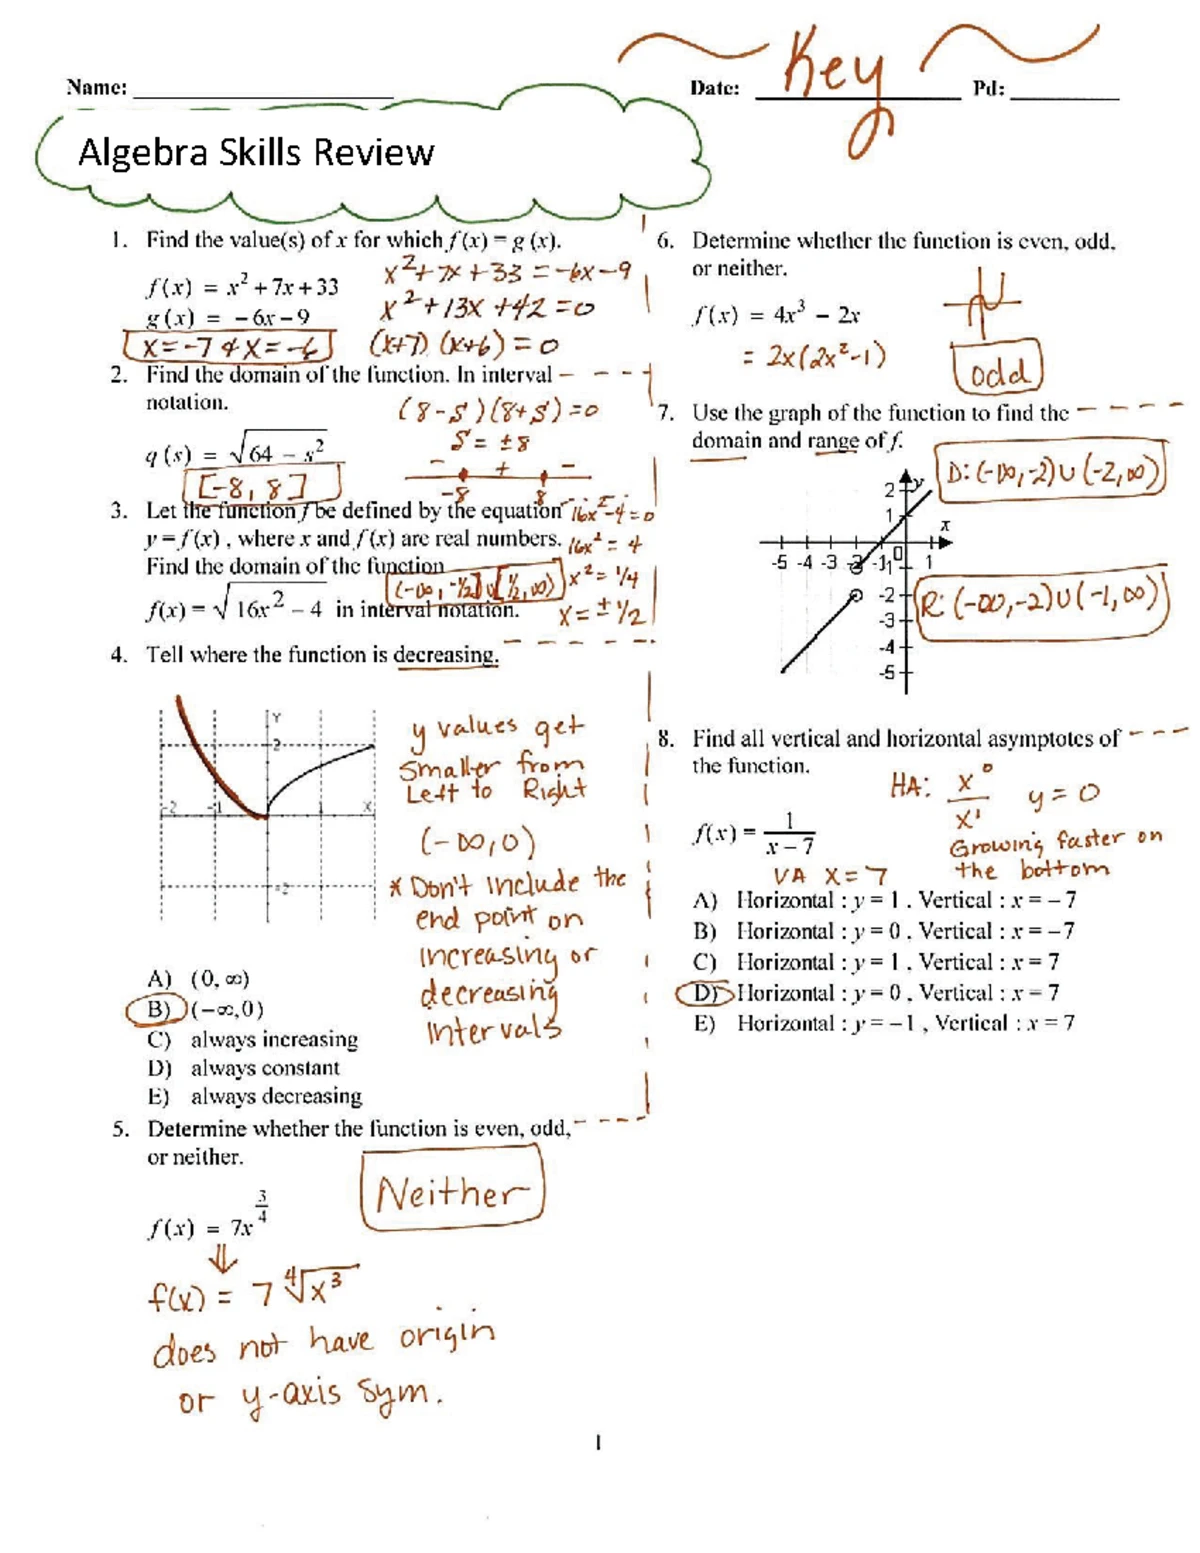 Key
Name: ____ Date: ____ Pd: ____
Algebra Skills Review
1. Find the value(s) of x for which f(x) = g(x).
f(x) = x² + 7x + 33
g(x) = −6x − 9
x²+7x+33 = −6x−9
x²+13x+42=0
(x+7)(x+6)=0
x=-7 & x=-6
2. Find the domain of the function. In interval
notation.
q(s) = √(64 − s²)
(8-s)(8+s)=0
s = ±8
− + −
-8 8
[-8, 8]
3. Let the function f be defined by the equation
y = f(x) , where x and f(x) are real numbers.
Find the domain of the function
f(x) = √(16x² − 4) in interval notation.
16x²-4=0
16x² = 4
x² = 1/4
x = ± 1/2
(-∞, -1/2] ∪ [1/2, ∞)
4. Tell where the function is decreasing.
Y
2
-2 -1 1 X
-2
y values get
smaller from
Left to Right
(-∞, 0)
* Don't include the
end point on
increasing or
decreasing
intervals
A) (0, ∞)
B) (−∞,0)
C) always increasing
D) always constant
E) always decreasing
5. Determine whether the function is even, odd,
or neither.
f(x) = 7x^(3/4)
Neither
f(x) = 7 ∜x³
does not have origin
or y-axis sym.
6. Determine whether the function is even, odd,
or neither.
f(x) = 4x³ − 2x
= 2x(2x²-1)
odd
7. Use the graph of the function to find the
domain and range of f.
D: (-∞,-2)∪(-2,∞)
2 y
1 x
-5 -4 -3 -2 -1 0 1
-1
-2
-3
-4
-5
R: (-∞,-2)∪(-1,∞)
8. Find all vertical and horizontal asymptotes of
the function.
f(x) = 1/(x − 7)
HA: x⁰/x¹ y = 0
Growing faster on
the bottom
VA x=7
A) Horizontal : y = 1 , Vertical : x = − 7
B) Horizontal : y = 0 , Vertical : x = −7
C) Horizontal : y = 1 , Vertical : x = 7
D) Horizontal : y = 0 , Vertical : x = 7
E) Horizontal : y = −1 , Vertical : x = 7
1